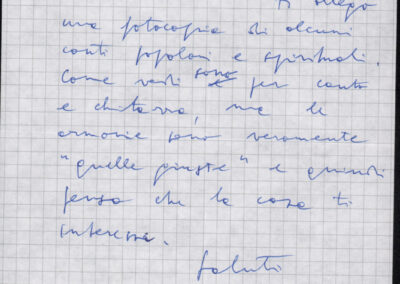 Ti allego
una fotocopia di alcuni
canti popolari e spirituali.
Come vedi sono per canto
e chitarra, ma le
armonie sono veramente
"quelle giuste" e quindi
penso che la cosa ti
interessi.
Saluti